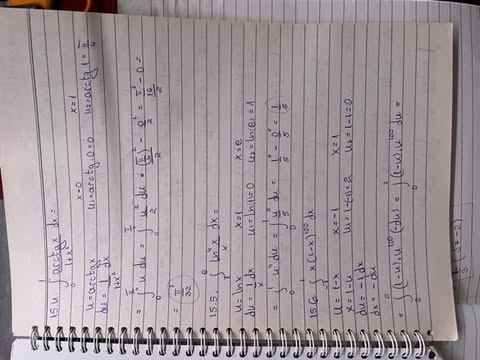 15.4. ∫₀¹ arctgx/(1+x²) dx =
x=0 x=1
u = arctgx u₁=arctg 0=0 u₂=arctg 1=π/4
du = 1/(1+x²) dx
= ∫₀^(π/4) u du = ∫₀^(π/4) u²/2 du = (π/4)²/2 - 0²/2 = π²/16/2 - 0 =
= π²/32
15.5. ∫₁^e ln⁴x/x dx =
u = lnx x=1 x=e
du = 1/x dx u₁=ln(1)=0 u₂=ln(e)=1
= ∫₀¹ u⁴ du = ∫₀¹ u⁵/5 du = 1⁵/5 - 0⁵/5 = 1/5
15.6 ∫₋₁¹ x(1-x)¹⁰⁰ dx
u = 1-x x=-1 x=1
x = 1-u u₁=1-(-1)=2 u₂=1-1=0
du = -1 dx
dx = -du
= ∫₂⁰ (1-u).u¹⁰⁰ (-du) = ∫₀² (1-u).u¹⁰⁰ du =